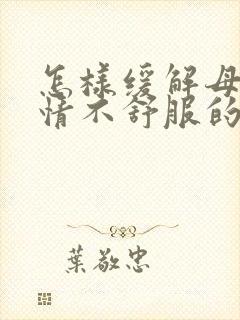 怎樣緩解母
情不舒服的
葉敬忠